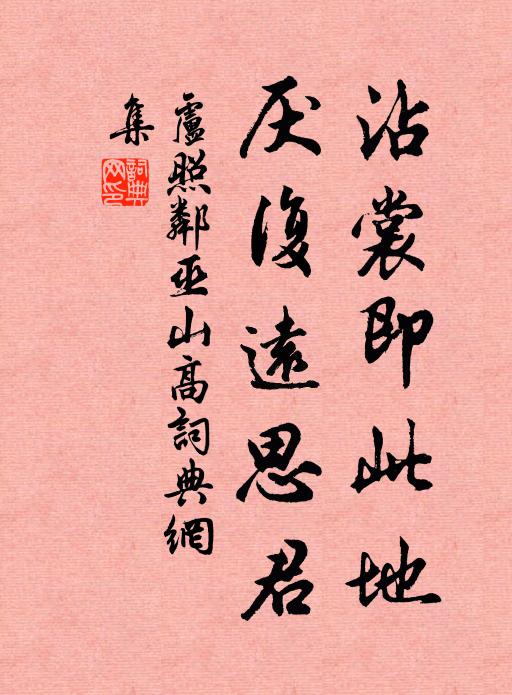 沾裳即此地
厌復遠思君
盧照鄰巫山高詞典網
集
詞典
网印